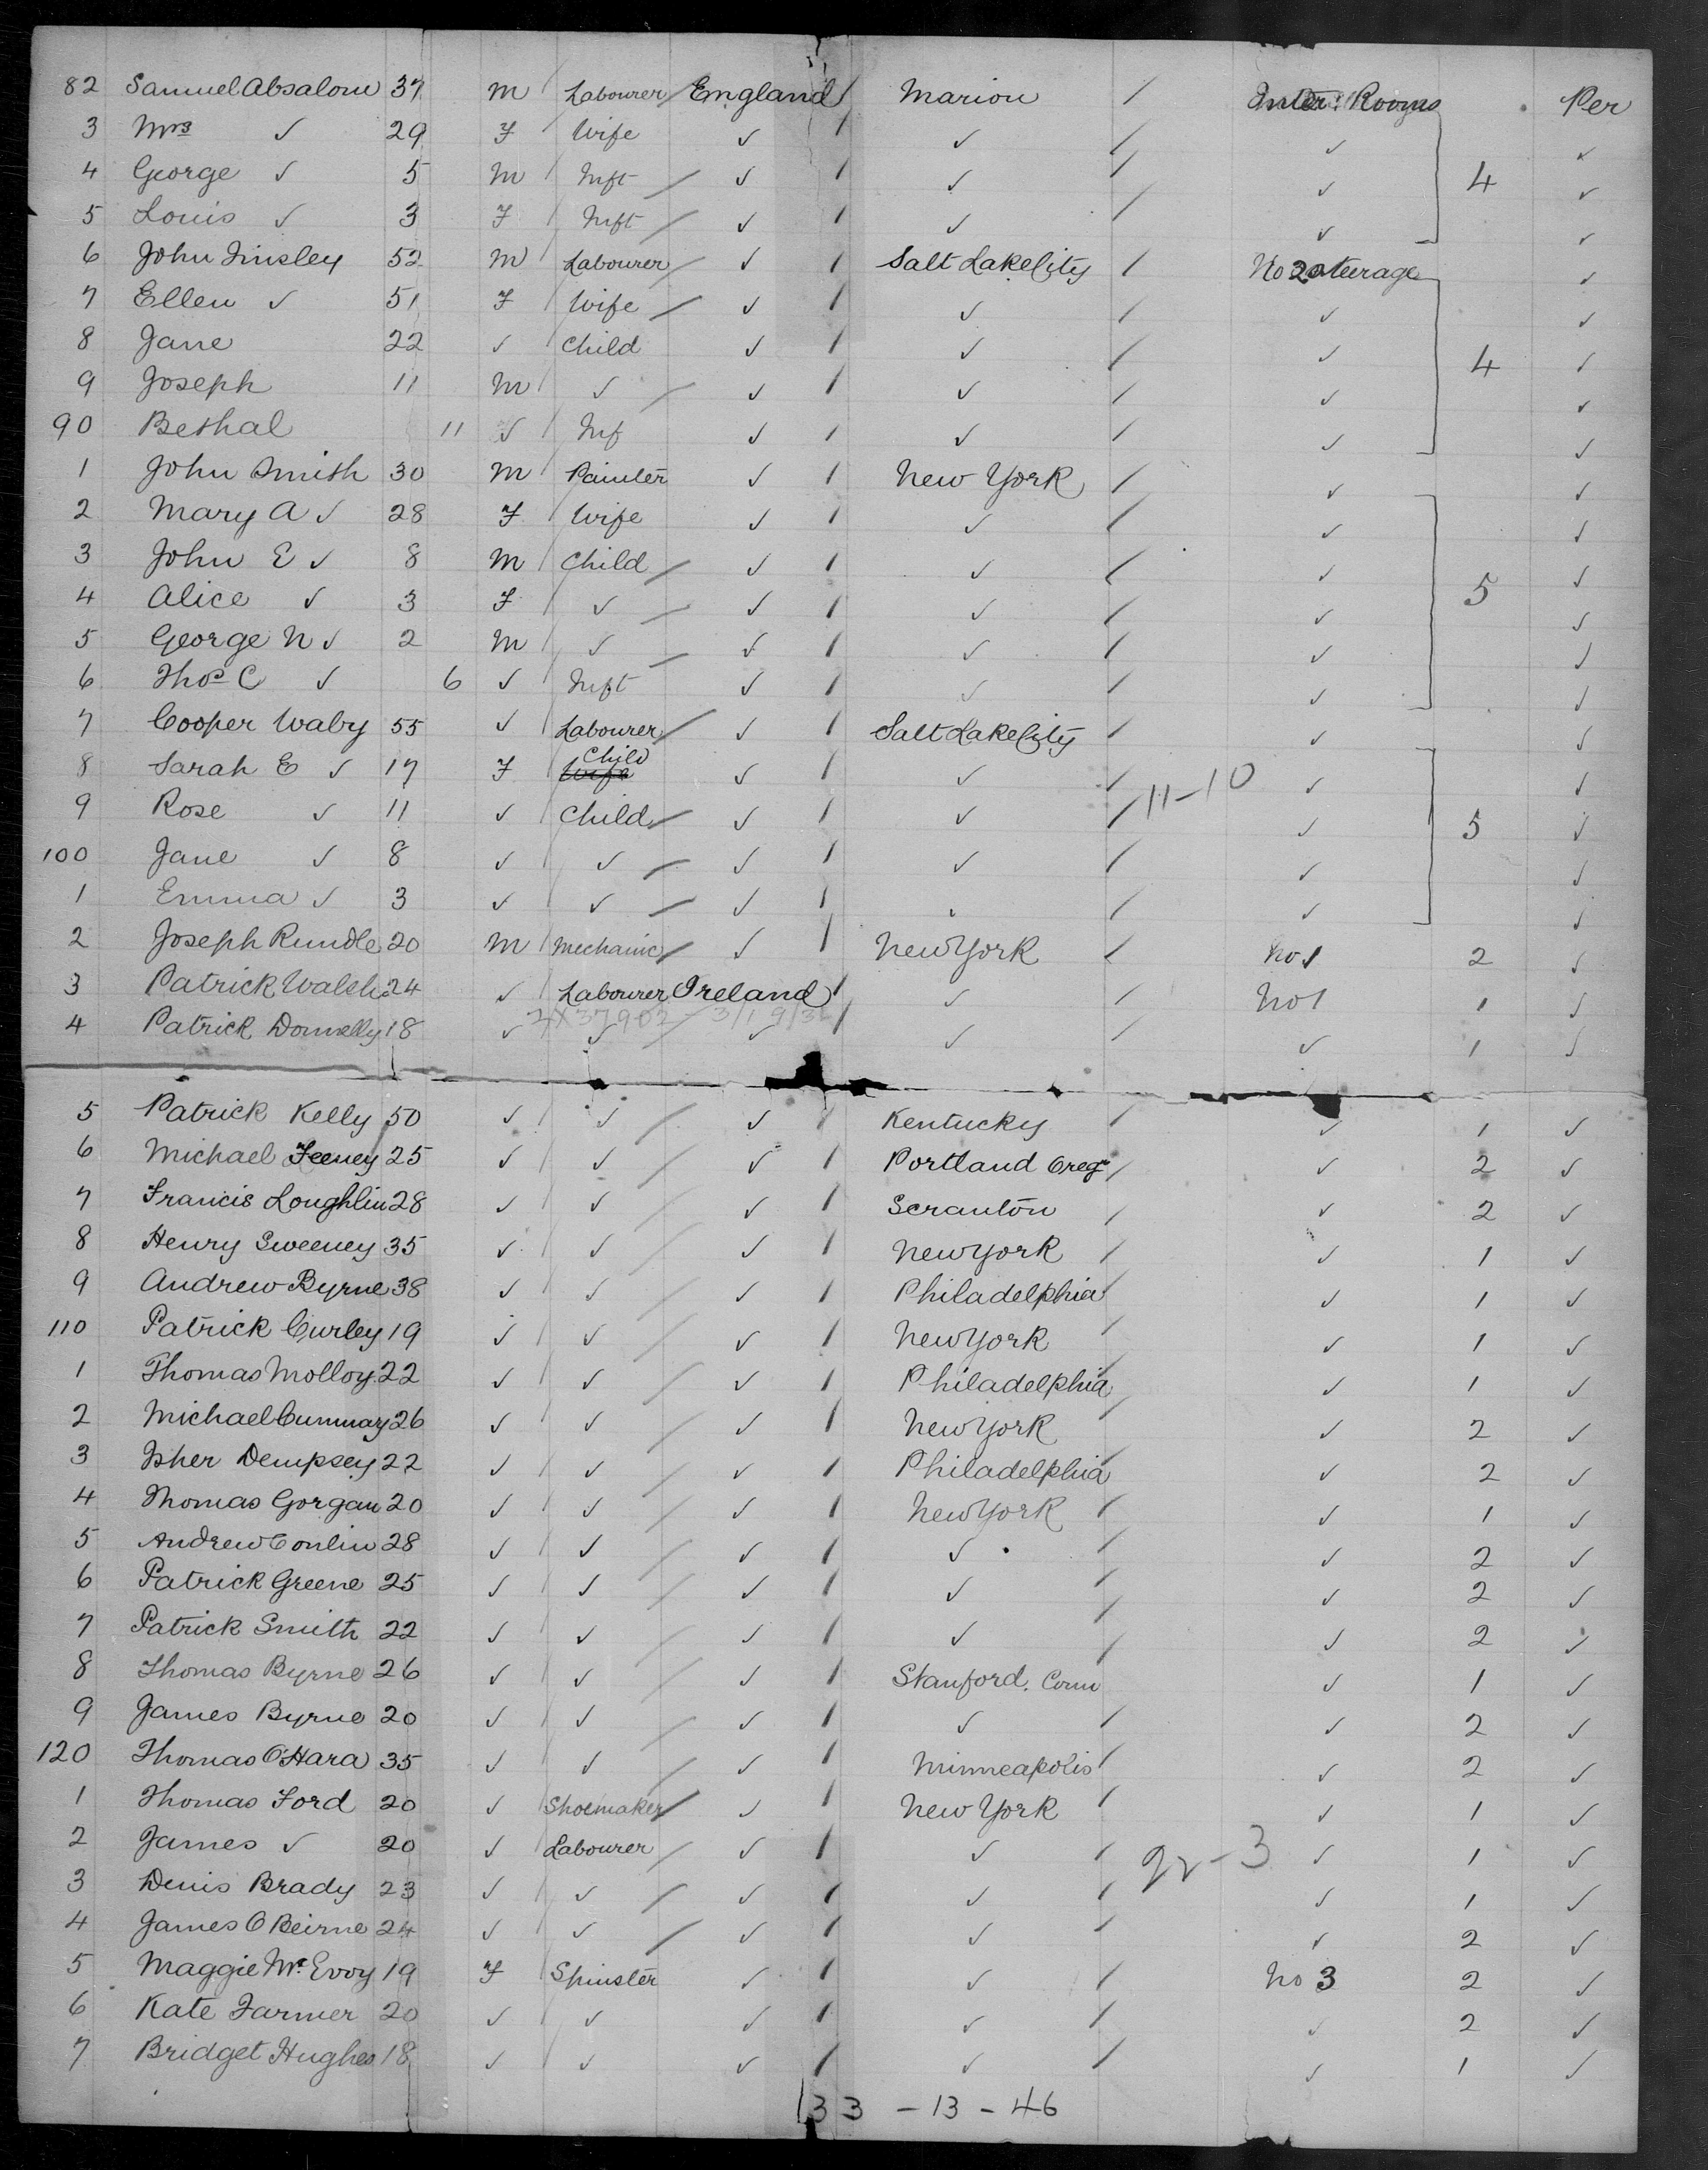 82 Samuel Absalom 37 m Labourer England Marion Inter: Rooms Per
3 Mrs ✓ 29 F Wife ✓ ✓ ✓ ✓
4 George ✓ 5 m Inft ✓ ✓ ✓ 4 ✓
5 Louis ✓ 3 F Inft ✓ ✓ ✓ ✓
6 John Tinsley 52 m Labourer ✓ Salt Lake City No 2 Steerage ✓
7 Ellen ✓ 51 F Wife ✓ ✓ ✓ ✓
8 Jane 22 ✓ Child ✓ ✓ ✓ 4 ✓
9 Joseph 11 m ✓ ✓ ✓ ✓ ✓
90 Bethal 11 ✓ Inf ✓ ✓ ✓ ✓
1 John Smith 30 m Painter ✓ New York ✓ ✓
2 Mary A ✓ 28 F Wife ✓ ✓ ✓ ✓
3 John E ✓ 8 m Child ✓ ✓ ✓ ✓
4 Alice ✓ 3 F ✓ ✓ ✓ ✓ 5 ✓
5 George N ✓ 2 m ✓ ✓ ✓ ✓ ✓
6 Thos C ✓ 6 ✓ Inft ✓ ✓ ✓ ✓
7 Cooper Waby 55 ✓ Labourer ✓ Salt Lake City ✓ ✓
8 Sarah E ✓ 17 F Wife Child ✓ ✓ 11-10 ✓ ✓
9 Rose ✓ 11 ✓ Child ✓ ✓ ✓ 5 ✓
100 Jane ✓ 8 ✓ ✓ ✓ ✓ ✓ ✓
1 Emma ✓ 3 ✓ ✓ ✓ ✓ ✓ ✓
2 Joseph Rundle 20 m Mechanic ✓ New York No 1 2 ✓
3 Patrick Walsh 24 ✓ Labourer Ireland ✓ No 1 1 ✓
2X37902 - 3/19/3
4 Patrick Donnelly 18 ✓ ✓ ✓ ✓ ✓ 1 ✓
5 Patrick Kelly 50 ✓ ✓ ✓ Kentucky ✓ 1 ✓
6 Michael Feeney 25 ✓ ✓ ✓ Portland Oregn ✓ 2 ✓
7 Francis Loughlin 28 ✓ ✓ ✓ Scranton ✓ 2 ✓
8 Henry Sweeney 35 ✓ ✓ ✓ New York ✓ 1 ✓
9 Andrew Byrne 38 ✓ ✓ ✓ Philadelphia ✓ 1 ✓
110 Patrick Curley 19 ✓ ✓ ✓ New York ✓ 1 ✓
1 Thomas Molloy 22 ✓ ✓ ✓ Philadelphia ✓ 1 ✓
2 Michael 26 ✓ ✓ ✓ New York ✓ 2 ✓
3 Dempsey 22 ✓ ✓ ✓ Philadelphia ✓ 2 ✓
4 Thomas Gorgan 20 ✓ ✓ ✓ New York ✓ 1 ✓
5 Andrew Conlin 28 ✓ ✓ ✓ ✓ ✓ 2 ✓
6 Patrick Greene 25 ✓ ✓ ✓ ✓ ✓ 2 ✓
7 Patrick Smith 22 ✓ ✓ ✓ ✓ ✓ 2 ✓
8 Thomas Byrne 26 ✓ ✓ ✓ Stanford. Conn ✓ 1 ✓
9 James Byrne 20 ✓ ✓ ✓ ✓ ✓ 2 ✓
120 Thomas O'Hara 35 ✓ ✓ ✓ Minneapolis ✓ 2 ✓
1 Thomas Ford 20 ✓ Shoemaker ✓ New York ✓ 1 ✓
2 James ✓ 20 ✓ Labourer ✓ ✓ ✓ 1 ✓
3 Denis Brady 23 ✓ ✓ ✓ ✓ ✓ 1 ✓
4 James O Beirne 24 ✓ ✓ ✓ ✓ ✓ 2 ✓
5 Maggie Mc Evoy 19 F Spinster ✓ ✓ No 3 2 ✓
6 Kate Farmer 20 ✓ ✓ ✓ ✓ ✓ 2 ✓
7 Bridget Hughes 18 ✓ ✓ ✓ ✓ ✓ 1 ✓
133 - 13 - 46